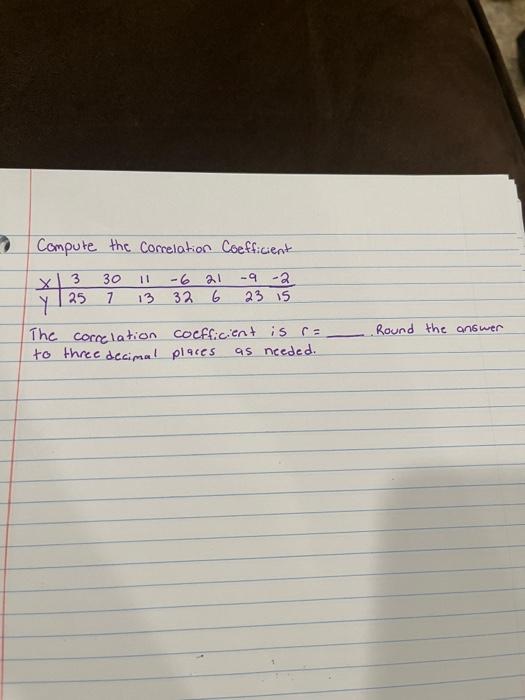 Compute the Correlation Coefficient
X | 3 30 11 -6 21 -9 -2
Y | 25 7 13 32 6 23 15
The correlation coefficient is r = ____. Round the answer
to three decimal places as needed.